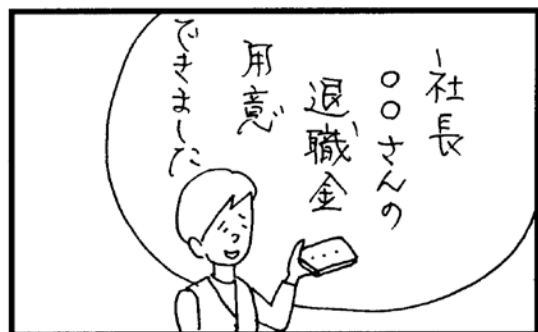 社長
○○さんの
退職金
用意
できました